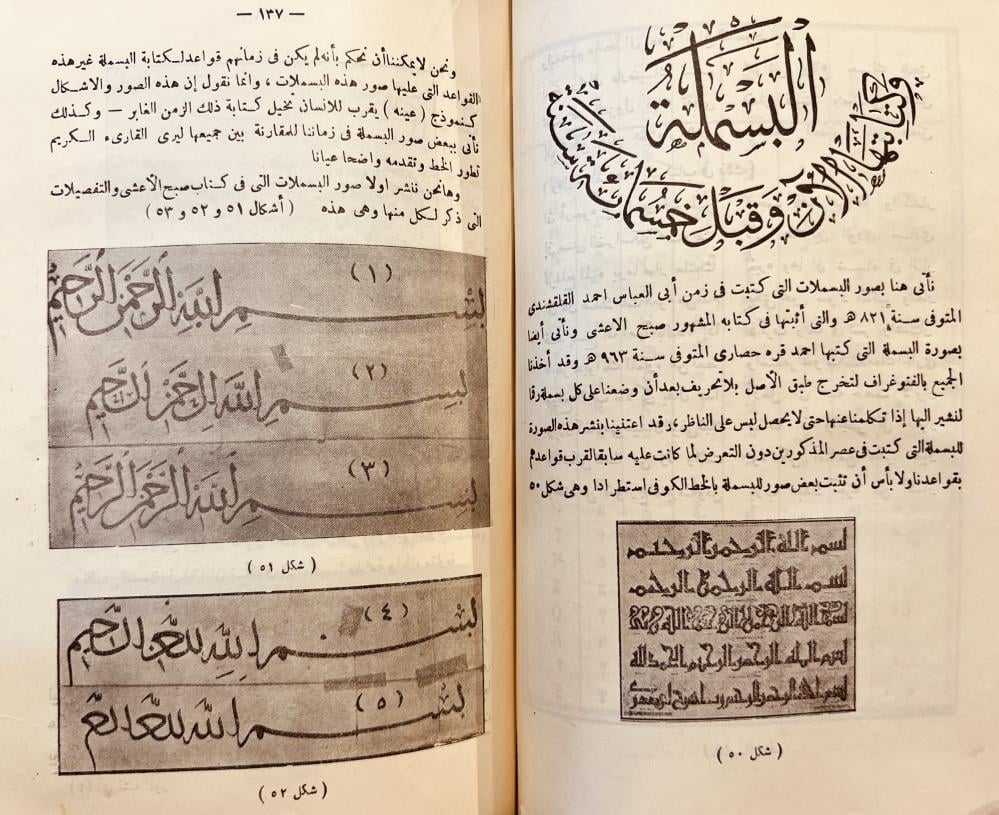 البسملة
وكتابتها الآن وقبل خمسمائة سنة
نأتى هنا بصور البسملات التى كتبت فى زمن أبى العباس احمد القلقشندى
المتوفى سنة ٨٢١ هـ والتى أثبتها فى كتابه المشهور صبح الاعشى ونأتى أيضا
بصورة البسملة التى كتبها احمد قره حصارى المتوفى سنة ٩٦٣ هـ وقد أخذنا
الجميع بالفتوغراف لتخرج طبق الأصل بلا تحريف بعد أن وضعنا على كل بسملة رقما
لنشير اليها إذا تكلمنا عنها حتى لا يحصل لبس على الناظر، وقد اعتنينا بنشر هذه الصورة
للبسملة التى كتبت فى عصر المذكورين دون التعرض لما كانت عليه سابقا لقرب قواعدهم
بقواعدنا ولا بأس أن تثبت بعض صور للبسملة بالخط الكوفى استطرادا وهى شكل ٥٠
بسم الله الرحمن الرحيم
بسم الله الرحمن الرحيم
بسم الله الرحمن الرحيم
بسم الله الرحمن الرحيم الحمد لله
بسم الله الرحمن الرحيم رب اشرح لى صدرى
( شكل ٥٠ )
— ١٣٧ —
ونحن لا يمكننا أن نحكم بأنه لم يكن فى زمانهم قواعد لكتابة البسملة غير هذه
القواعد التى عليها صور هذه البسملات ، وانما نقول إن هذه الصور والاشكال
كنموذج ( عينه ) يقرب للانسان تخيل كتابة ذلك الزمن الغابر — وكذلك
نأتى ببعض صور البسملة فى زماننا للمقارنة بين جميعها ليرى القارىء الكريم
تطور الخط وتقدمه واضحا عيانا
وهانحن ننشر اولا صور البسملات التى فى كتاب صبح الأعشى والتفصيلات
التى ذكر لكل منها وهى هذه ( أشكال ٥١ و ٥٢ و ٥٣ )
(١)
بسم الله الرحمن الرحيم
(٢)
بسم الله الرحمن الرحيم
(٣)
بسم الله الرحمن الرحيم
( شكل ٥١ )
(٤)
بسم الله الرحمن الرحيم
(٥)
بسم الله
( شكل ٥٢ )